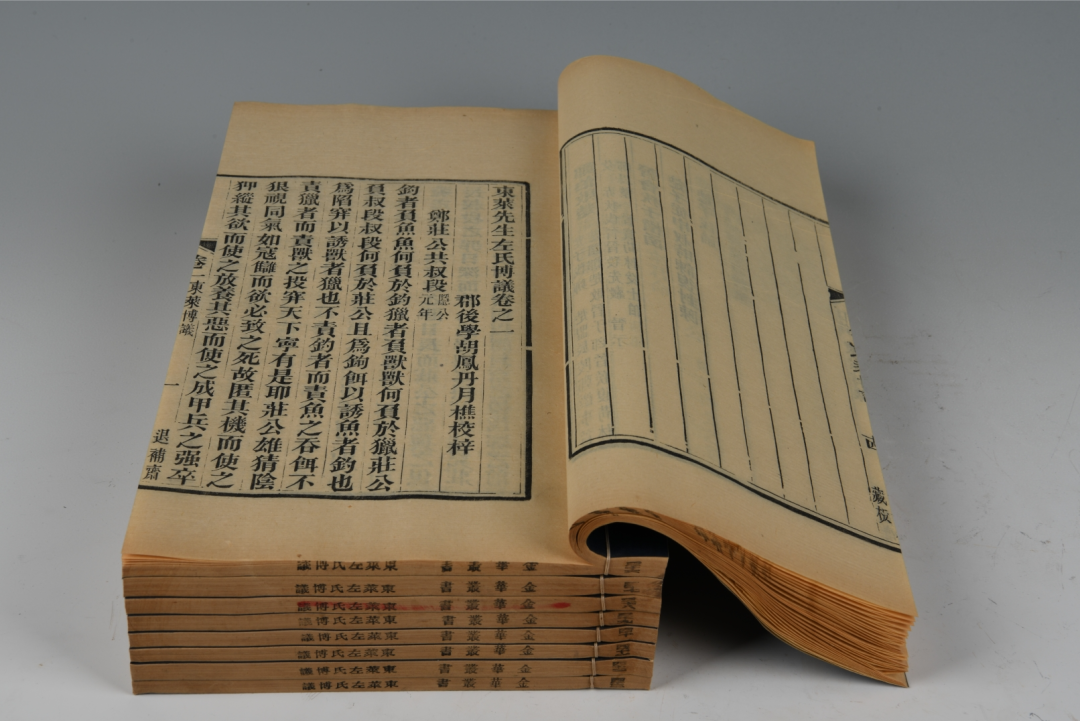 東萊先生左氏博議卷之一
郡後學胡鳳丹月樵校梓
鄭莊公共叔段隱公元年
釣者負魚魚何負於釣獵者負獸獸何負於獵莊公
負叔段叔段何負於莊公且爲鉤餌以誘魚者釣也
爲陷穽以誘獸者獵也不責釣者而責魚之吞餌不
責獵者而責獸之投穽天下寧有是耶莊公雄猜陰
狠視同氣如寇讎而欲必致之死故匿其機而使之
狎縱其欲而使之放養其惡而使之成甲兵之强卒
卷一東萊博議
一
退補齋
藏板
東萊左氏博議 金華叢書
東萊左氏博議 金華叢書
東萊左氏博議 金華叢書
東萊左氏博議 金華叢書
東萊左氏博議 金華叢書
東萊左氏博議 金華叢書
東萊左氏博議 金華叢書
東萊左氏博議 金華叢書